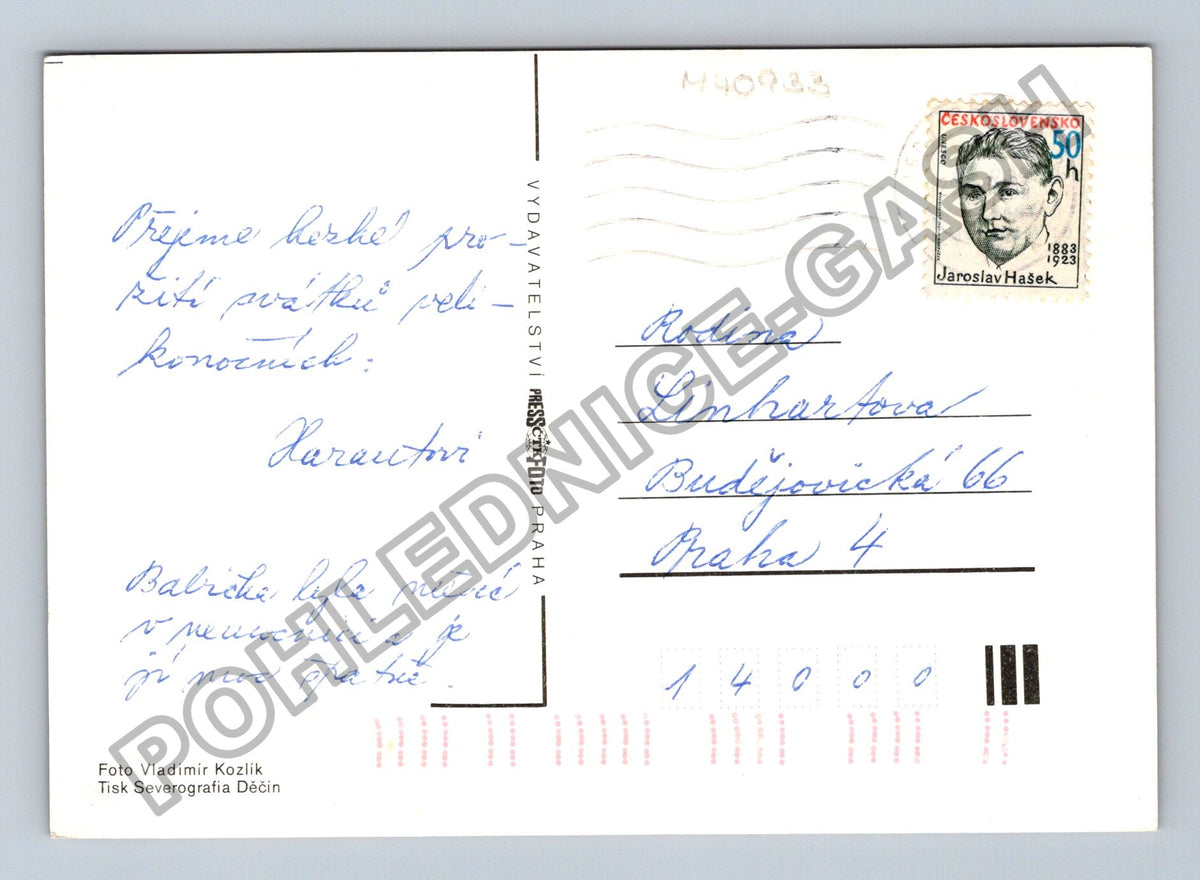 M40933
ČESKOSLOVENSKO
50
h
UNESCO
1883
1923
Jaroslav Hašek
Přejeme hezké pro-
žití svátků veli-
konočních.
Harantovi
Babička byla měsíc
v nemocnici a je
jí moc špatně.
VYDAVATELSTVÍ PRESSFOTO PRAHA
ČTK
Rodina
Linhartova
Budějovická 66
Praha 4
14000
Foto Vladimír Kozlík
Tisk Severografia Děčín
POHLEDNICE-GASH